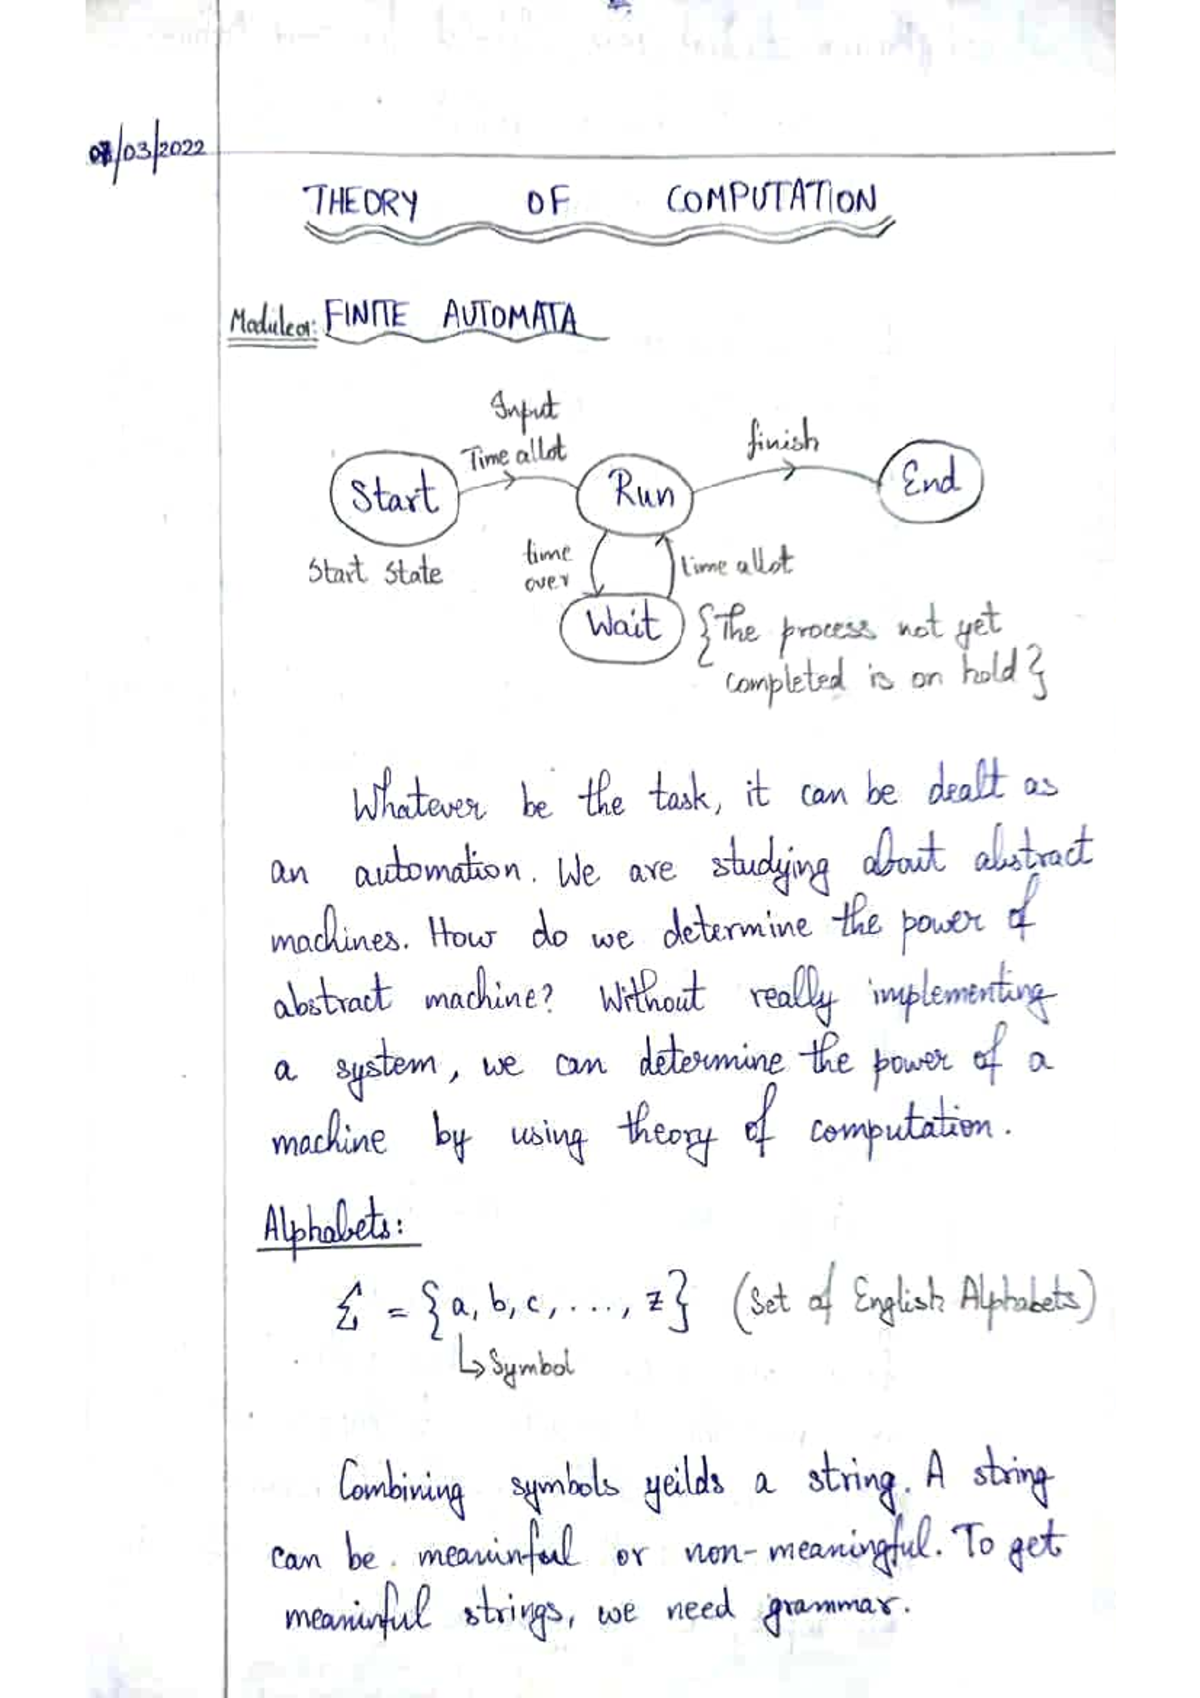 07/03/2022
THEORY OF COMPUTATION
Module 01: FINITE AUTOMATA
Input
Time allot
finish
Start
Run
End
Start State
time
over
time allot
Wait
{The process not yet
completed is on hold}
Whatever be the task, it can be dealt as
an automation. We are studying about abstract
machines. How do we determine the power of
abstract machine? Without really implementing
a system, we can determine the power of a
machine by using theory of computation.
Alphabets:
Σ = {a, b, c, ..., z} (Set of English Alphabets)
↳ Symbol
Combining symbols yeilds a string. A string
can be meaninful or non-meaningful. To get
meaninful strings, we need grammar.